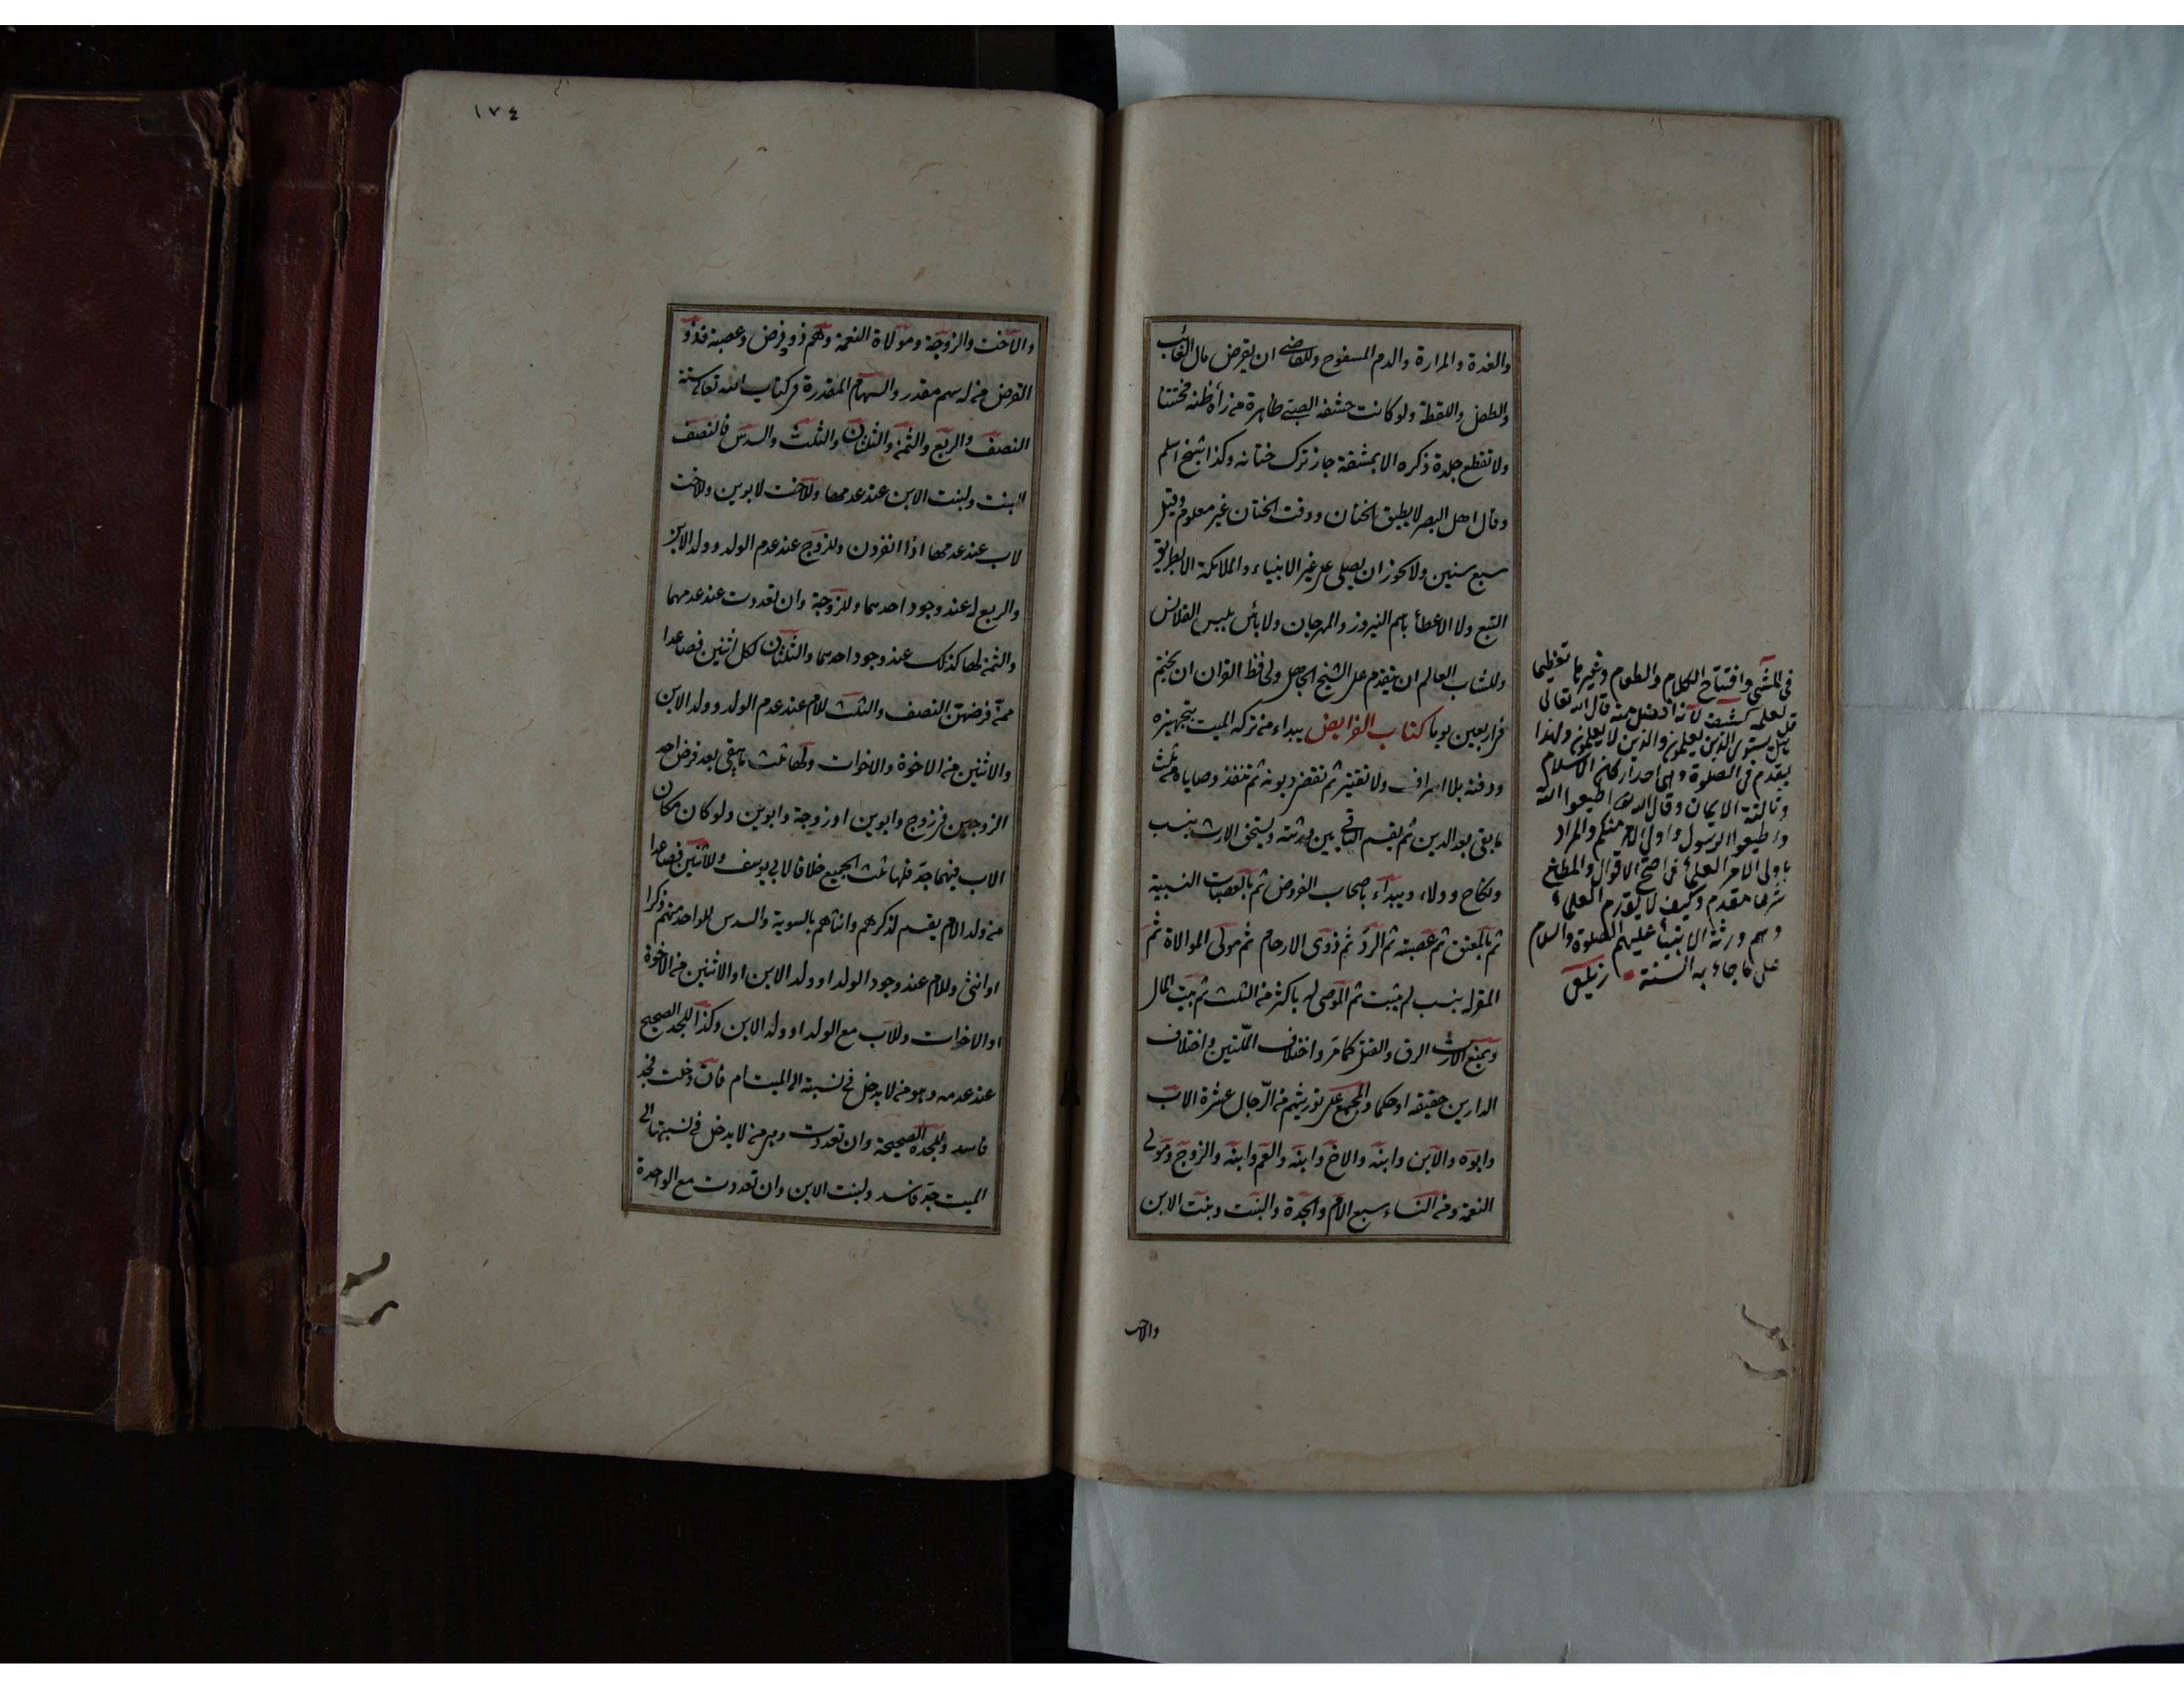 والغدة والمرارة والدم المسفوح وللقاضى ان يقرض مال الغائب
والطفل واللقطة ولو كانت حشفة الصبى ظاهرة من رأه ظنه مختتنا
ولا تقطع جلدة ذكره الا بمشقة جاز ترك ختانه وكذا شيخ اسلم
وقال اهل البصر لا يطيق الختان ووقت الختان غير معلوم وقيل
سبع سنين ولا يجوز ان يصلى على غير الانبياء والملائكة الا بطريق
التبع ولا الاعطأ باسم النيروز والمهرجان ولا بأس بلبس القلانس
وللشاب العالم ان يتقدم على الشيخ الجاهل ولحافظ القران ان يختم
فى اربعين يوما كتاب الفرايض يبداء من تركه الميت بتجهيزه
ودفنه بلا اسراف ولا تقتير ثم تقضى ديونه ثم تنفذ وصاياه من ثلث
ما بقى بعد الدين ثم يقسم الباقى بين ورثته ويستحق الارث بنسب
ونكاح وولاء ويبداء باصحاب الفروض ثم بالعصبات النسبية
ثم بالمعتق ثم عصبته ثم الرد ثم ذوى الارحام ثم مولى الموالاة ثم
المقر له بنسب لم يثبت ثم الموصى له باكثر من الثلث ثم بيت المال
ويمنع الارث الرق والقتل كما مر واختلاف الملتين واختلاف
الدارين حقيقه او حكما والمجمع على توريثهم من الرجال عشرة الاب
وابوه والابن وابنه والاخ وابنه والعم وابنه والزوج ومولى
النعمة ومن النساء سبع الام والجدة والبنت وبنت الابن
والاخت
فى المشى وافتتاح الكلام والطعام وغيرها تعظيما
لعلمه كشف لانه افضل منه قال الله تعالى
قل هل يستوى الذين يعلمون والذين لا يعلمون ولهذا
يقدم فى الصلوة وهى احد اركان الاسلام
وتالية الايمان وقال الله تعا اطيعوا الله
واطيعوا الرسول واولى الامر منكم والمراد
باولى الامر العلمأ فى اصح الاقوال والمطاع
شرعا مقدم وكيف لا يقدم العلمأ
وهم ورثة الانبيأ عليهم الصلوة والسلام
على ما جاء به السنة زيلعى
١٧٤
والاخت والزوجة ومولاة النعمة وهم ذو فرض وعصبة فذو
الفرض من له سهم مقدر والسهام المقدرة فى كتاب الله تعالى ستة
النصف والربع والثمن والثلثان والثلث والسدس فالنصف
للبنت ولبنت الابن عند عدمها وللاخت لابوين وللاخت
لاب عند عدمها اذا انفردن وللزوج عند عدم الولد وولد الابن
والربع له عند وجود احدهما وللزوجة وان تعددت عند عدمهما
والثمن لها كذلك عند وجود احدهما والثلثان لكل اثنين فصاعدا
ممن فرضهن النصف والثلث للام عند عدم الولد وولد الابن
والاثنين من الاخوة والاخوات ولها ثلث ما يبقى بعد فرض احد
الزوجين فى زوج وابوين او زوجة وابوين ولو كان مكان
الاب فيهما جد فلها ثلث الجميع خلافا لابى يوسف وللاثنين فصاعدا
من ولد الام يقسم لذكرهم وانثاهم بالسوية والسدس للواحد منهم ذكرا
او انثى وللام عند وجود الولد او ولد الابن او الاثنين من الاخوة
او الاخوات وللاب مع الولد او ولد الابن وكذا للجد الصحيح
عند عدمه وهو من لا يدخل فى نسبته الى الميت ام فان دخلت فجد
فاسد وللجدة الصحيحة وان تعددت وهى من لا يدخل فى نسبتها الى
الميت جد فاسد ولبنت الابن وان تعددت مع الواحدة